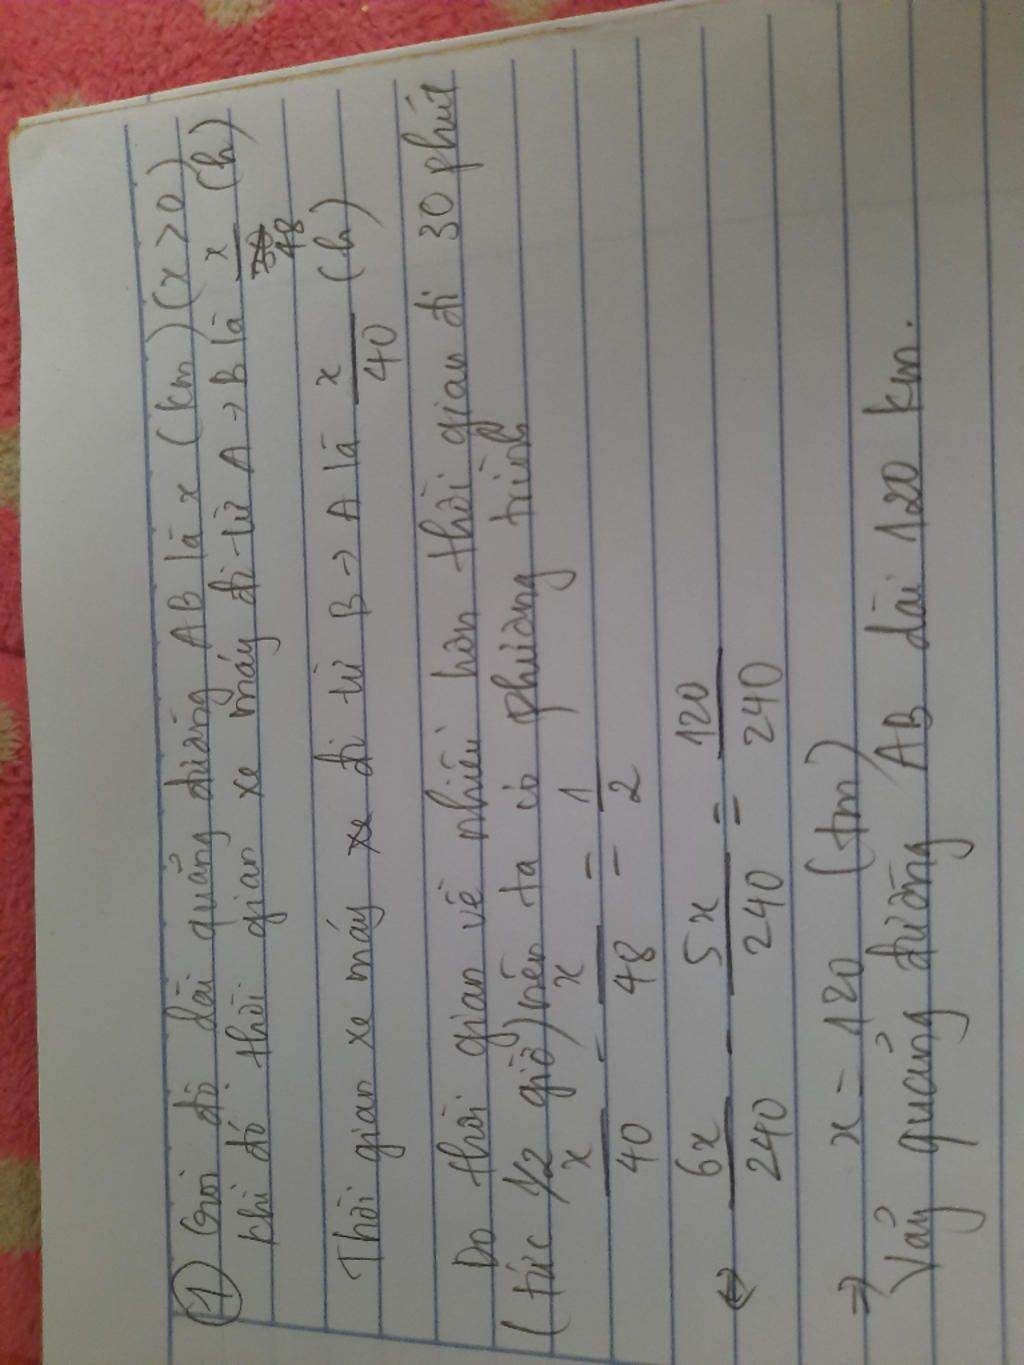 ① Gọi độ dài quãng đường AB là x (km) (x > 0)
khi đó thời gian xe máy đi từ A → B là x/48 (h)
Thời gian xe máy đi từ B → A là x/40 (h)
Do thời gian về nhiều hơn thời gian đi 30 phút
(tức 1/2 giờ) nên ta có phương trình
x/40 - x/48 = 1/2
⇔ 6x/240 - 5x/240 = 120/240
⇒ x = 120 (tm)
Vậy quãng đường AB dài 120 km.